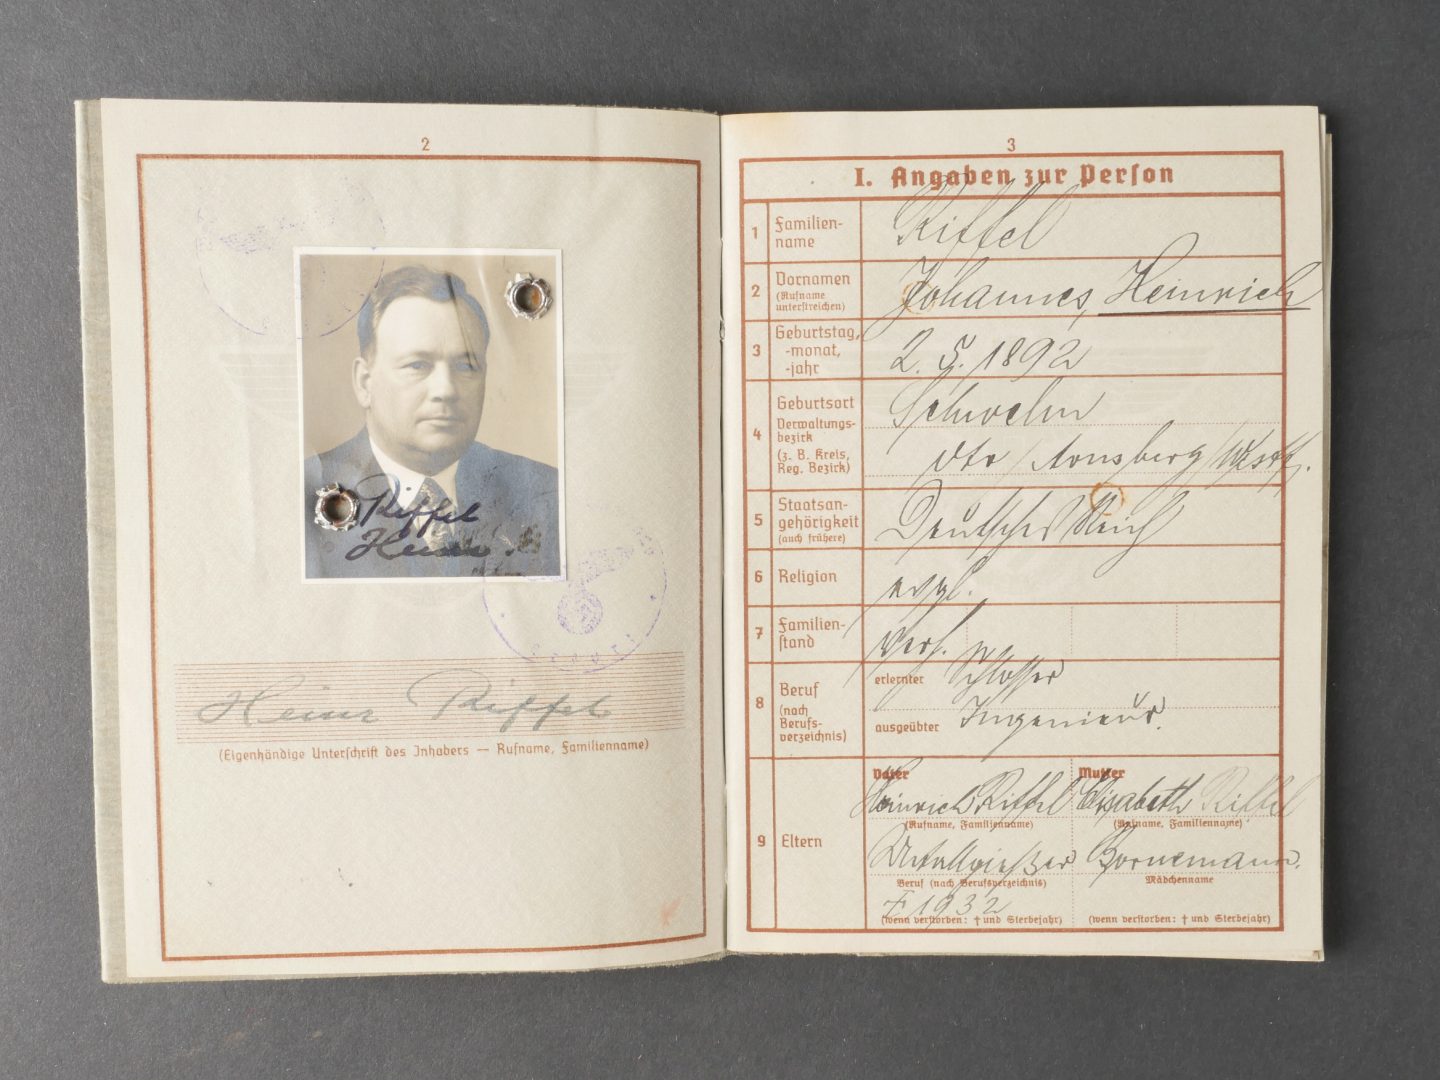 2
Riffel
Heinr.
Heinr Riffel
(Eigenhändige Unterschrift des Inhabers — Rufname, Familienname)
3
I. Angaben zur Person
1 Familien-
name
Riffel
2 Vornamen
(Rufname
unterstreichen)
Johannes, Heinrich
3 Geburtstag,
-monat,
-jahr
2. 5. 1892
4 Geburtsort
Verwaltungs-
bezirk
(z. B. Kreis,
Reg. Bezirk)
Schwelm
Arnsberg/Westf.
5 Staatsan-
gehörigkeit
(auch frühere)
Deutsches Reich
6 Religion
evgl.
7 Familien-
stand
verh.
8 Beruf
(nach
Berufs-
verzeichnis)
erlernter Schlosser
ausgeübter Ingenieur.
9 Eltern
Vater
Heinrich Riffel
(Rufname, Familienname)
Metallgießer
Beruf (nach Berufsverzeichnis)
† 1932
(wenn verstorben: † und Sterbejahr)
Mutter
Elisabeth Riffel
(Rufname, Familienname)
Bornemann.
Mädchenname
(wenn verstorben: † und Sterbejahr)